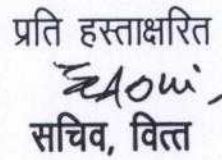 प्रति हस्ताक्षरित
सचिव, वित्त